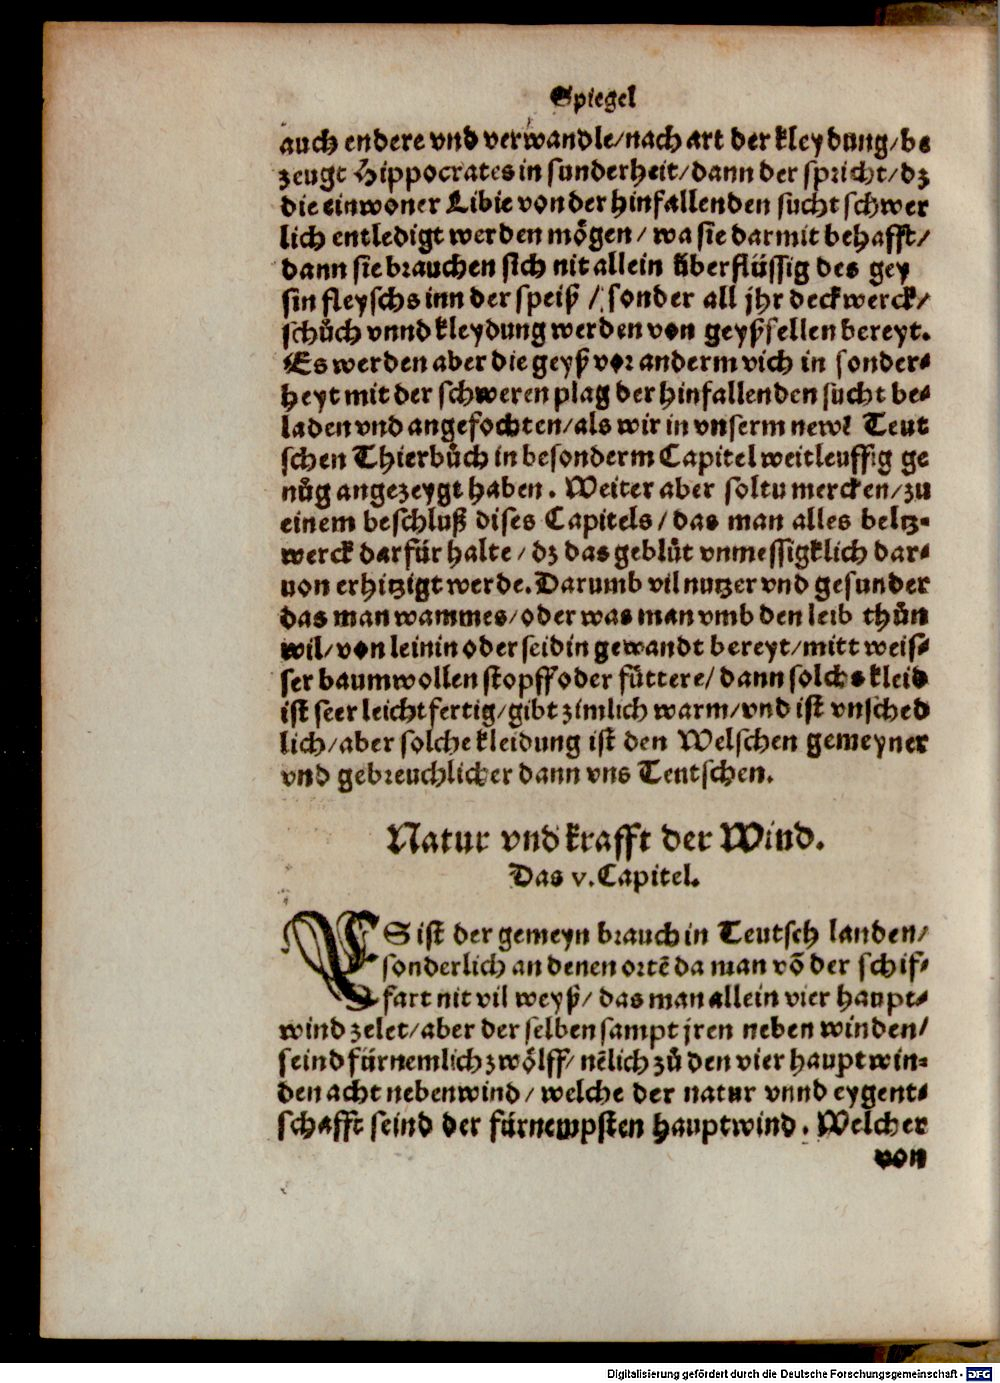 Spiegel
auch endere vnd verwandle/nach art der kleydung/be
zeugt Hippocrates in sunderheit/dann der spricht/dz
die einwoner Libie von der hinfallenden sucht schwer
lich entledigt werden mögen/wa sie darmit behafft/
dann sie brauchen sich nit allein überflüssig des gey
sin fleyschs inn der speiß/sonder all jhr deckwerck/
schůch vnnd kleydung werden von geyßfellen bereyt.
Es werden aber die geyß vor anderm vich in sonder-
heyt mit der schweren plag der hinfallenden sucht be-
laden vnd angefochten/als wir in vnserm newẽ Teut
schen Thierbůch in besonderm Capitel weitleuffig ge
nůg angezeygt haben. Weiter aber soltu mercken/zu
einem beschluß dises Capitels/das man alles beltz-
werck darfür halte/dz das geblůt vnmessigklich dar-
uon erhitzigt werde. Darumb vil nutzer vnd gesunder
das man wammes/oder was man vmb den leib thůn
wil/von leinin oder seidin gewandt bereyt/mitt weis-
ser baumwollen stopff oder füttere/dann solchs kleid
ist seer leichtfertig/gibt zimlich warm/vnd ist vnsched
lich/aber solche kleidung ist den Welschen gemeyner
vnd gebreuchlicher dann vns Teutschen.
Natur vnd krafft der Wind.
Das v. Capitel.
ES ist der gemeyn brauch in Teutsch landen/
sonderlich an denen ortẽ da man võ der schif-
fart nit vil weyß/das man allein vier haupt-
wind zelet/aber der selben sampt jren neben winden/
seind fürnemlich zwölff/nẽlich zů den vier hauptwin-
den acht nebenwind/welche der natur vnnd eygent-
schafft seind der fürnempsten hauptwind. Welcher
von
Digitalisierung gefördert durch die Deutsche Forschungsgemeinschaft - DFG